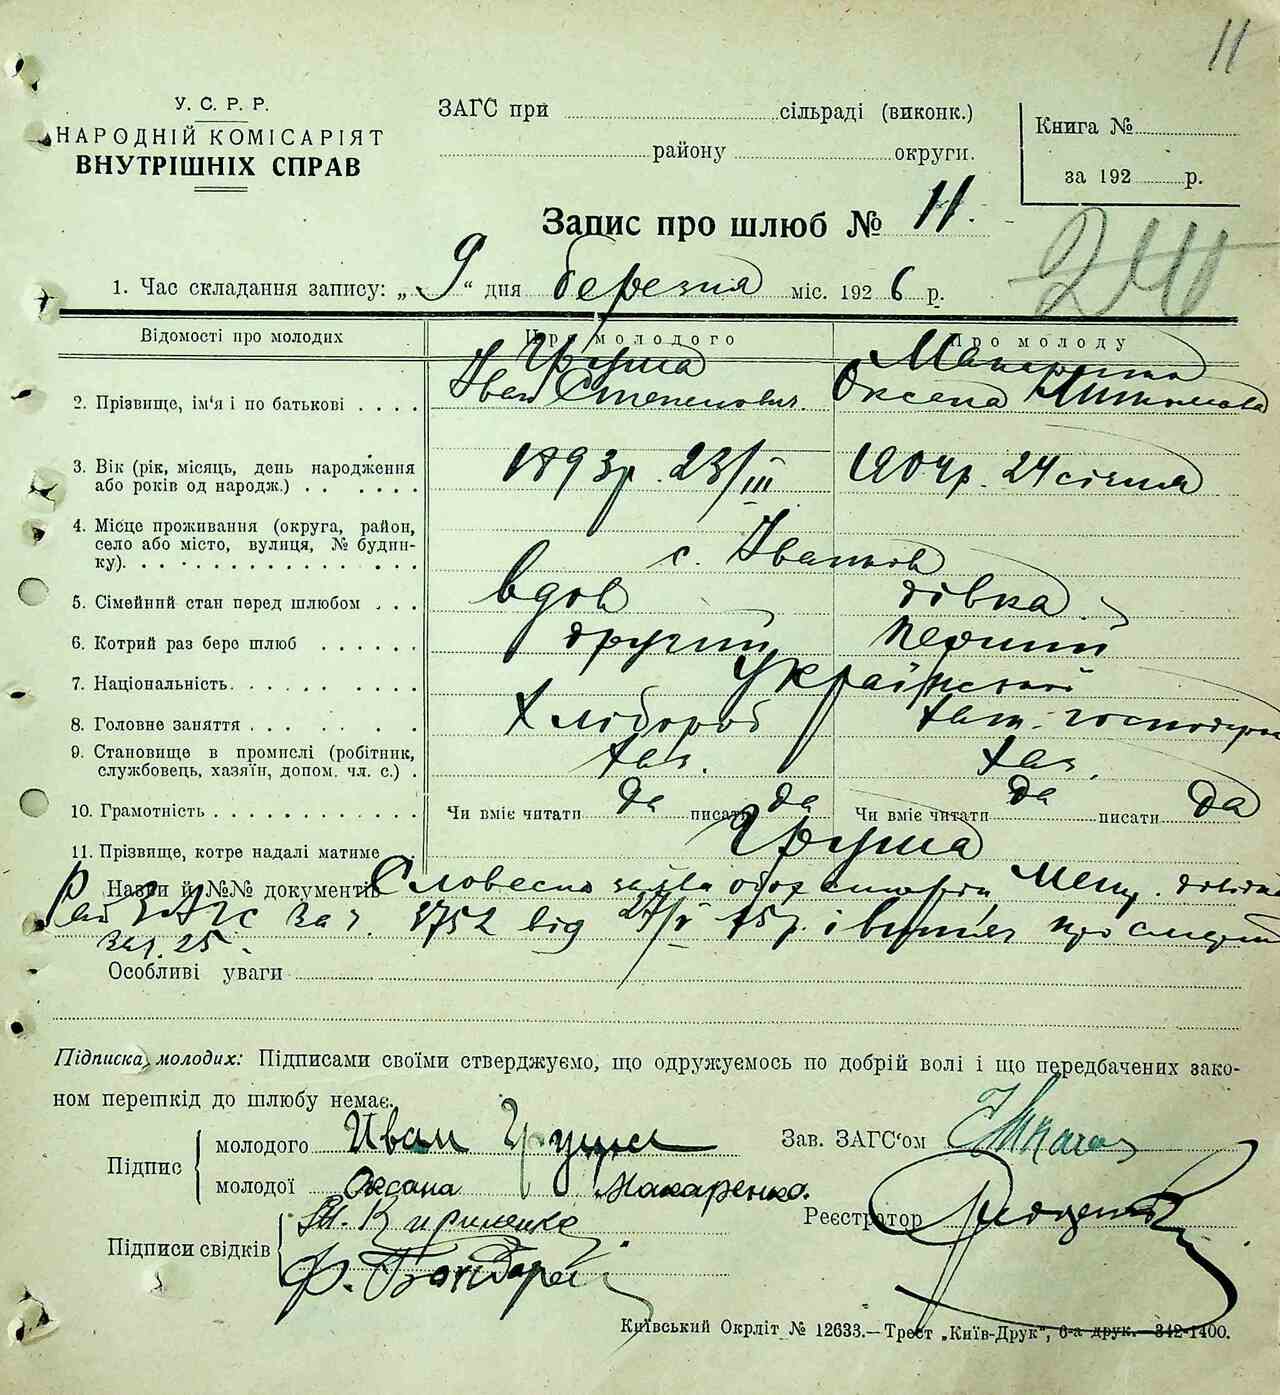 11
У. С. Р. Р.
НАРОДНІЙ КОМІСАРІЯТ
ВНУТРІШНІХ СПРАВ
ЗАГС при сільраді (виконк.)
району округи.
Книга №
за 192 р.
Запис про шлюб № 11.
240
1. Час складання запису: „ 9 “ дня березня міс. 192 6 р.
Відомості про молодих Про молодого Про молоду
Груша Макаренко
2. Прізвище, ім'я і по батькові Іван Степанович Оксана
3. Вік (рік, місяць, день народження 1893р. 23/III 1904р. 24 січня
або років од народж.)
4. Місце проживання (округа, район,
село або місто, вулиця, № будин- с. Іванков
ку).
5. Сімейний стан перед шлюбом вдов дівка
6. Котрий раз бере шлюб другий перший
7. Національність української
8. Головне заняття Хлібороб хат. господарка
9. Становище в промислі (робітник, хаз. хаз.
службовець, хазяїн, допом. чл. с.)
10. Грамотність Чи вміє читати да писати да Чи вміє читати да писати да
11. Прізвище, котре надалі матиме Груша
Назви й №№ документів Словесна заява обох
ЗАГС за ч. 3752 від і витяг про смерть
за ч. 25.
Особливі уваги
Підписка молодих: Підписами своїми стверджуємо, що одружуємось по добрій волі і що передбачених зако-
ном перешкід до шлюбу немає.
Підпис
молодого Иван Груша
молодої Оксана Макаренко.
Зав. ЗАГС'ом
Реєстратор
Підписи свідків
Кириленко
Ф. Бондарей
Київський Окрліт № 12633.— Трест „Київ-Друк“, 6-а друк. 342-1400.